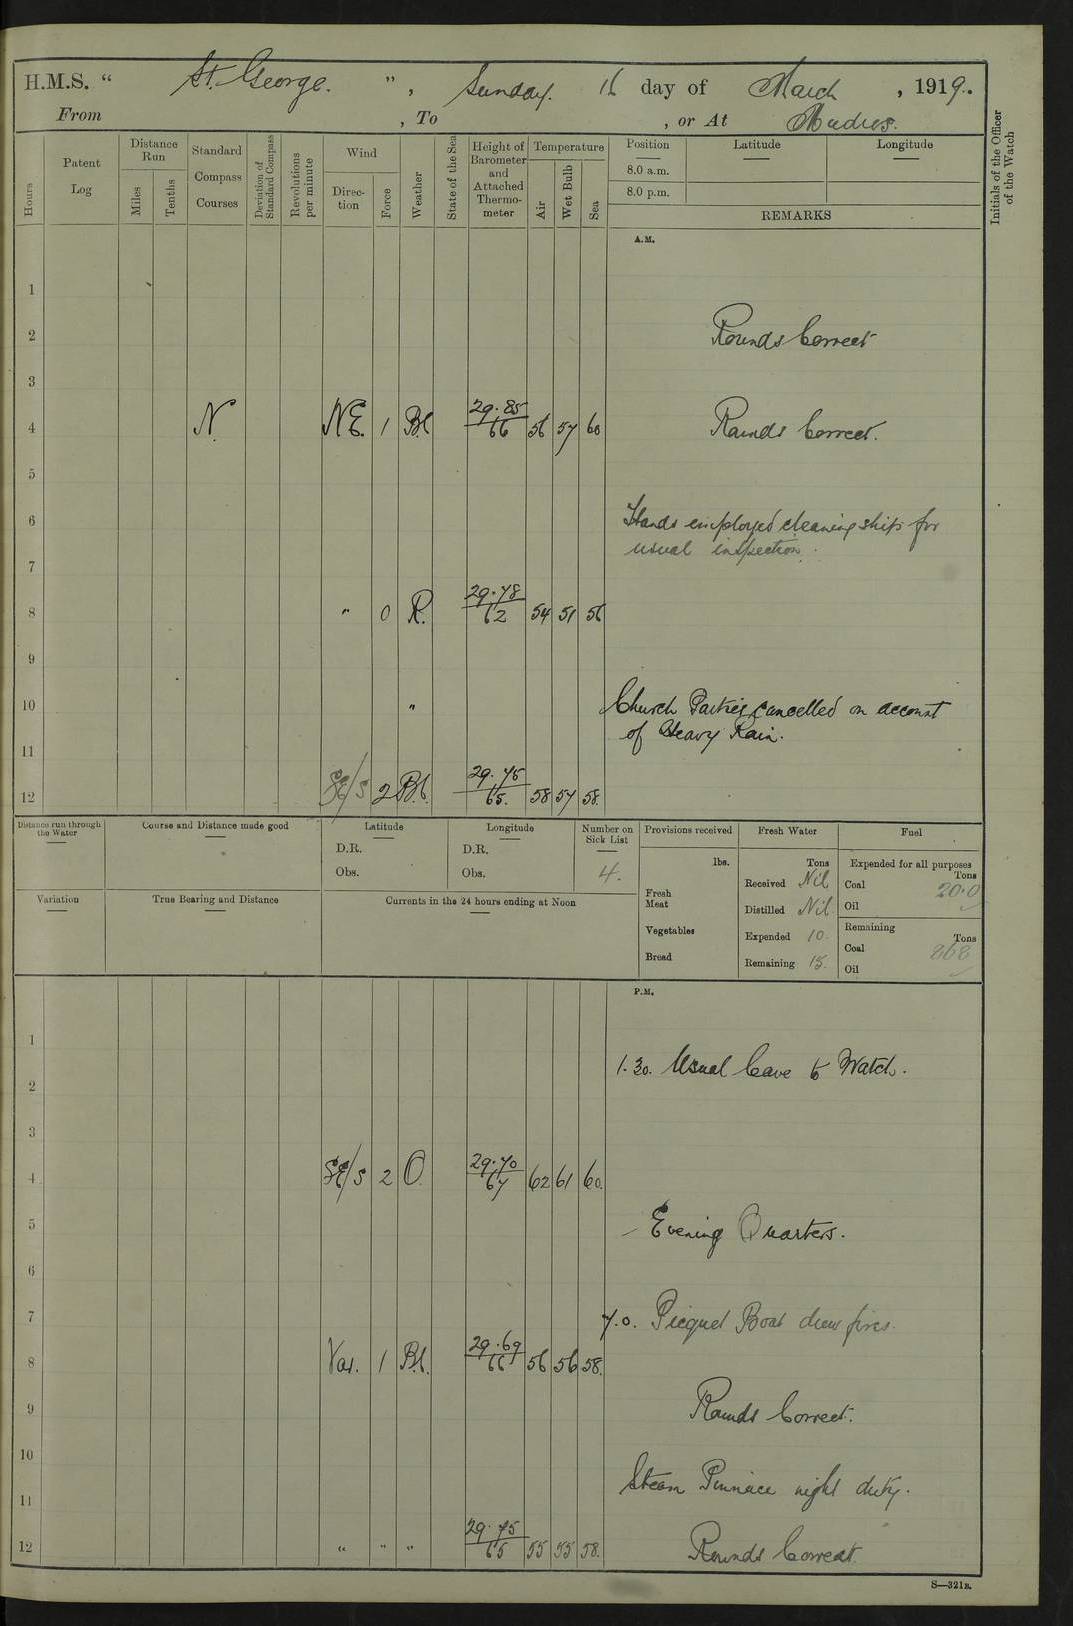 H.M.S. " St. George. ", Sunday. 16 day of March, 1919.
From , To , or At Mudros.
Hours
Patent Log
Distance Run
Miles
Tenths
Standard Compass Courses
Deviation of Standard Compass
Revolutions per minute
Wind
Direction
Force
Weather
State of the Sea
Height of Barometer and Attached Thermometer
Temperature
Air
Wet Bulb
Sea
Position
8.0 a.m.
8.0 p.m.
Latitude
Longitude
REMARKS
Initials of the Officer of the Watch
A.M.
1
2 Rounds Correct
3
4 N. NE. 1 Bc 29.85/66 56 57 60 Rounds Correct.
5
6 Hands employed cleaning ship for
usual inspection.
7
8 " 0 R. 29.78/62 54 51 56
9
10 " Church Parties cancelled on account
of Heavy Rain.
11
12 SE/S 2 Bc. 29.75/65. 58 57 58.
Distance run through the Water
Course and Distance made good
Latitude
D.R.
Obs.
Longitude
D.R.
Obs.
Number on Sick List
4.
Variation
True Bearing and Distance
Currents in the 24 hours ending at Noon
Provisions received
lbs.
Fresh Meat
Vegetables
Bread
Fresh Water
Tons
Received Nil
Distilled Nil
Expended 10.
Remaining 15.
Fuel
Expended for all purposes
Tons
Coal 20.0
Oil
Remaining
Tons
Coal 268
Oil
P.M.
1
1.30. Usual leave to Watch.
2
3
4 SE/S 2 O. 29.70/67 62 61 60.
5 Evening Quarters.
6
7 7.0. Picquet Boat drew fires.
8 Var. 1 Bc. 29.69/66 56 56 58.
9 Rounds Correct.
10
Steam Pinnace night duty.
11
12 " " " 29.75/65 55 55 58. Rounds Correct.
S—321B.